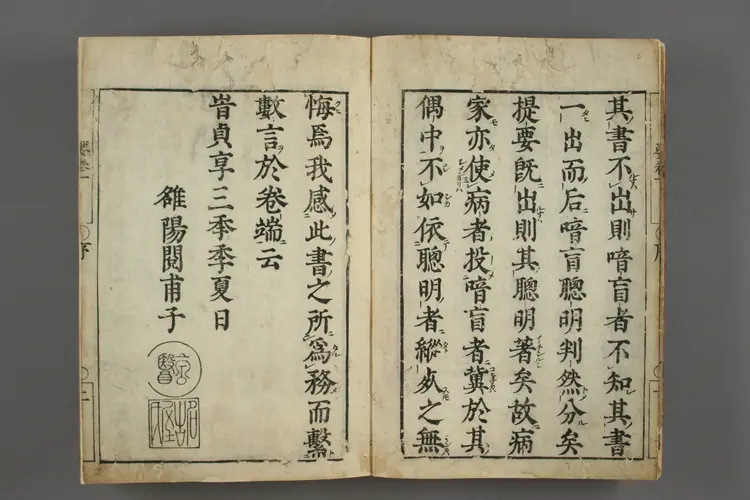 其書不出則喑盲者不知其書
一出而后喑盲聰明判然分矣
提要旣出則其聰明著矣故病
家亦使病者投喑盲者冀於其
偶中不如依聰明者縱夾之無
悔焉我感此書之所爲務而繫
數言於卷端云
旹貞享三季季夏日
雒陽閱甫子